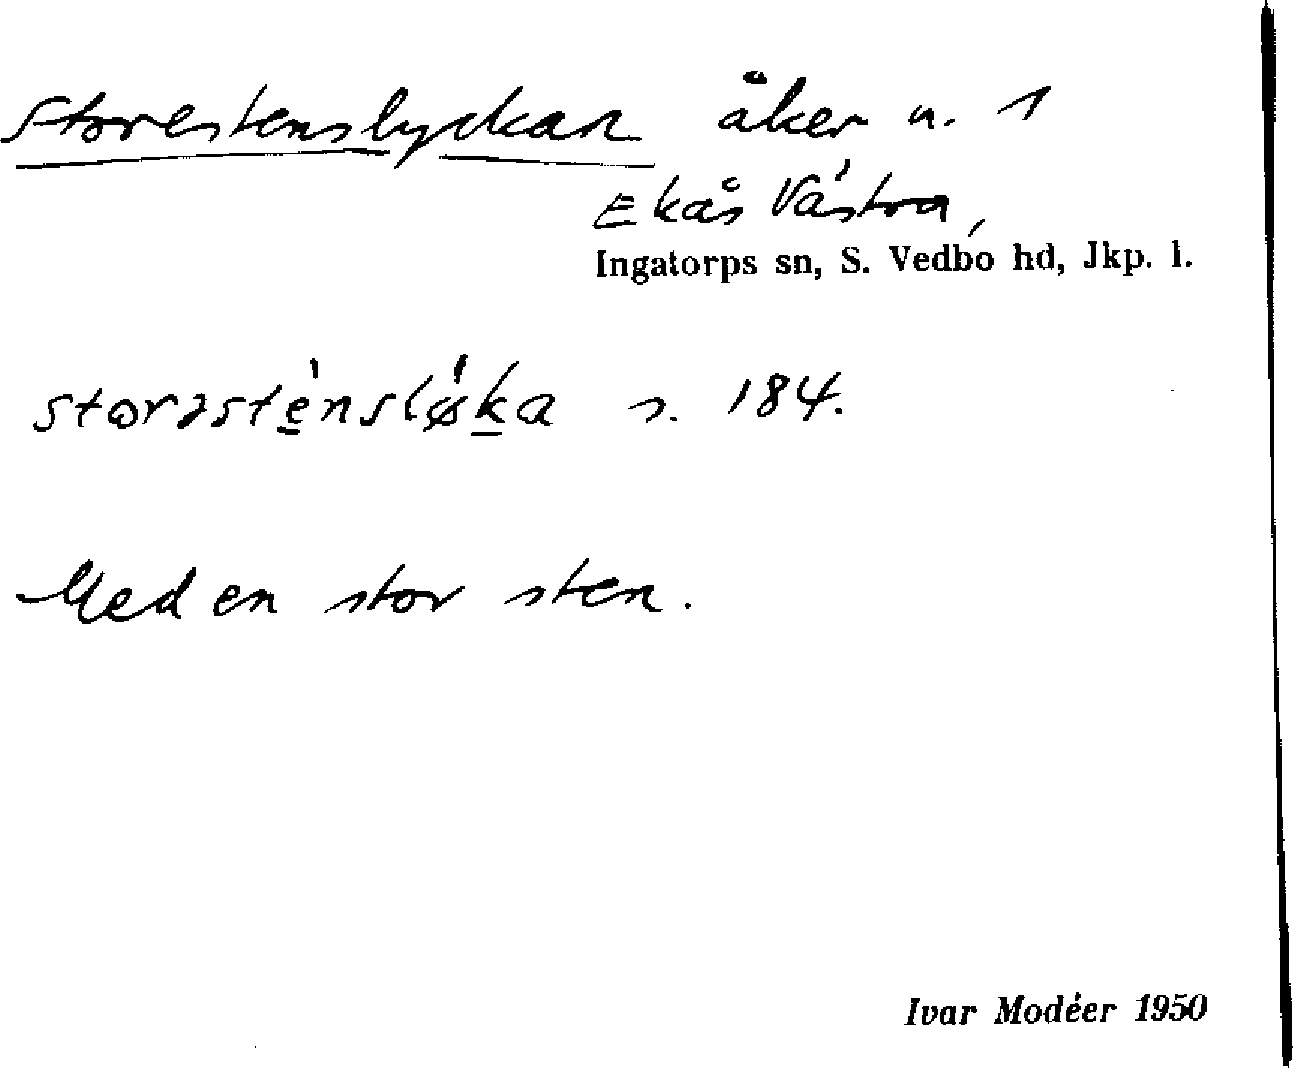 Storestenslyckan åker u. 1
Ekås Västra,
Ingatorps sn, S. Vedbo hd, Jkp. l.
storəste̠̍nslø̍k̠a s. 184.
Med en stor sten.
Ivar Modéer 1950